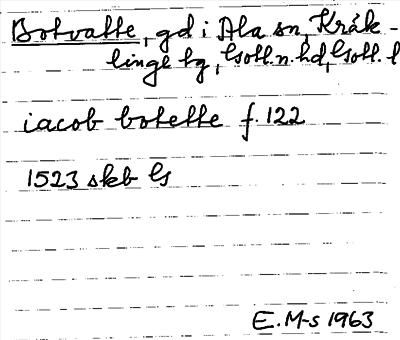 Botvatte, gd i Ala sn, Kräk-
linge tg, Gotl.n.hd, Gotl. l
iacob botette f. 122
1523 skb Gs
E.M-s 1963